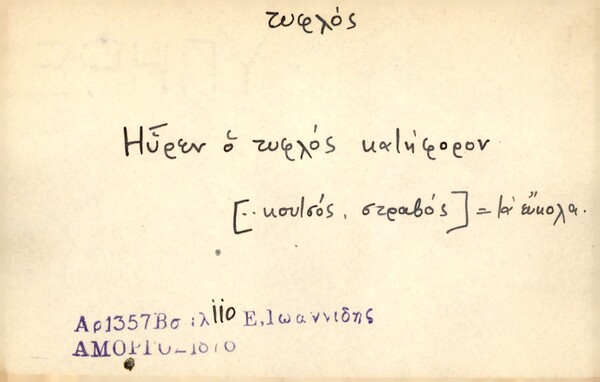 τυφλός
Ηὗρεν ὁ τυφλός κατήφορον
[.. κουτσός, στραβός] = τἀ εὔκολα.
Αρ1357Βσ ιλ 110 Ε, Ιωαννιδης
ΑΜΟΡΓΟΣ 1876